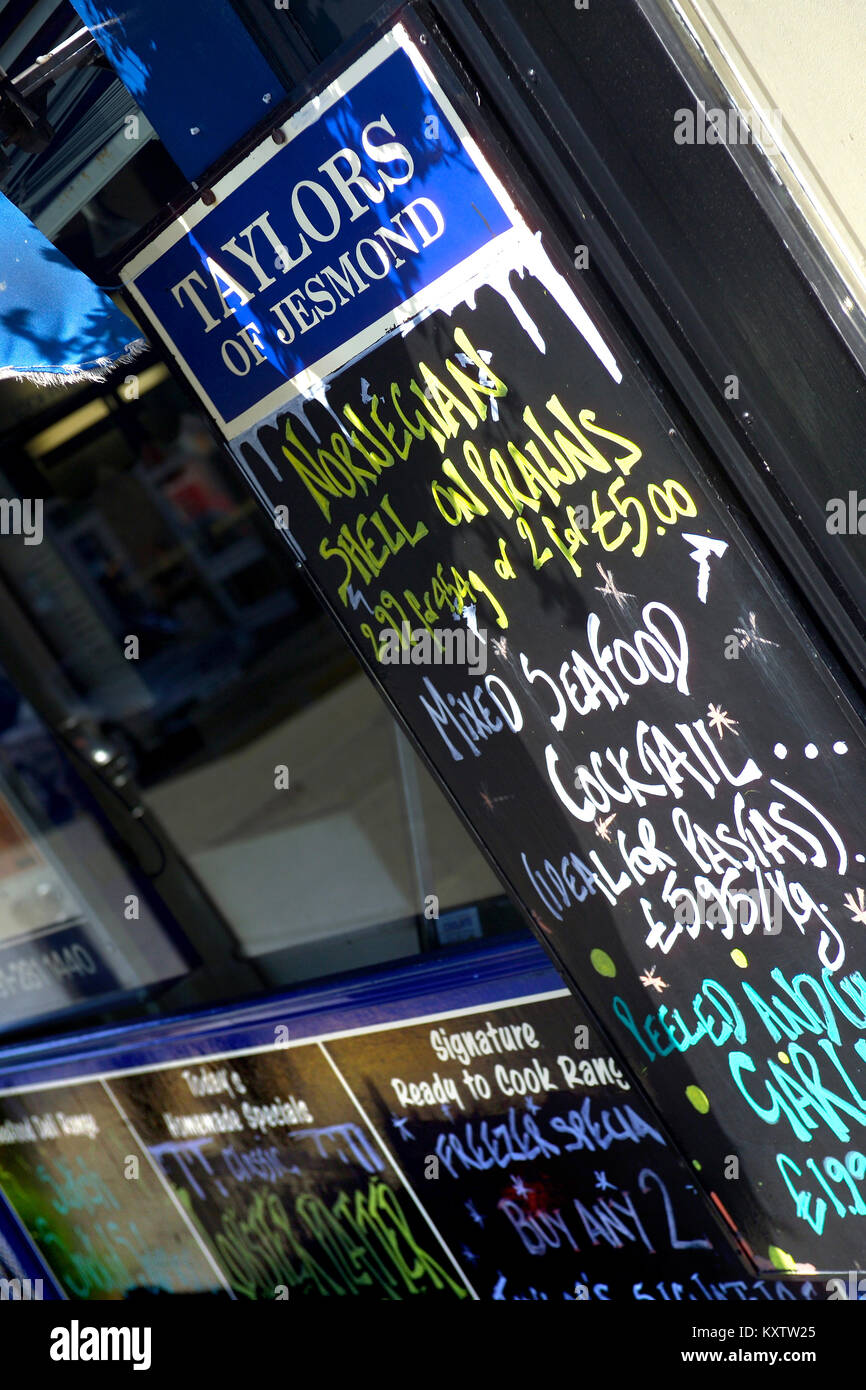 TAYLORS
OF JESMOND
NORWEGIAN
SHELL ON PRAWNS
2.92 for 454g or 2 for £5.00
MIXED SEAFOOD
COCKTAIL...
(IDEAL FOR PASTAS).
£5.95/Kg.
PEELED AND
GARL
£1.99
281 1440
Deli Range
Today's
Homemade Specials
CLASSIC
Signature
Ready to Cook Rang
FREEZER SPECIA
BUY ANY 2
alamy
Image ID: KXTW25
www.alamy.com